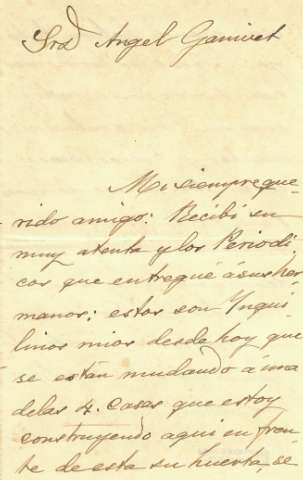 Srd Angel Ganivet
Mi siempre que-
rido amigo: Recibí su
muy atenta y los Periodi
cos que entregué á sus her
manos; estos son Ynqui
linos mios desde hoy que
se están mudando á una
delas 4. Casas que estoy
construyendo aqui en fren
te de esta su huerta, se